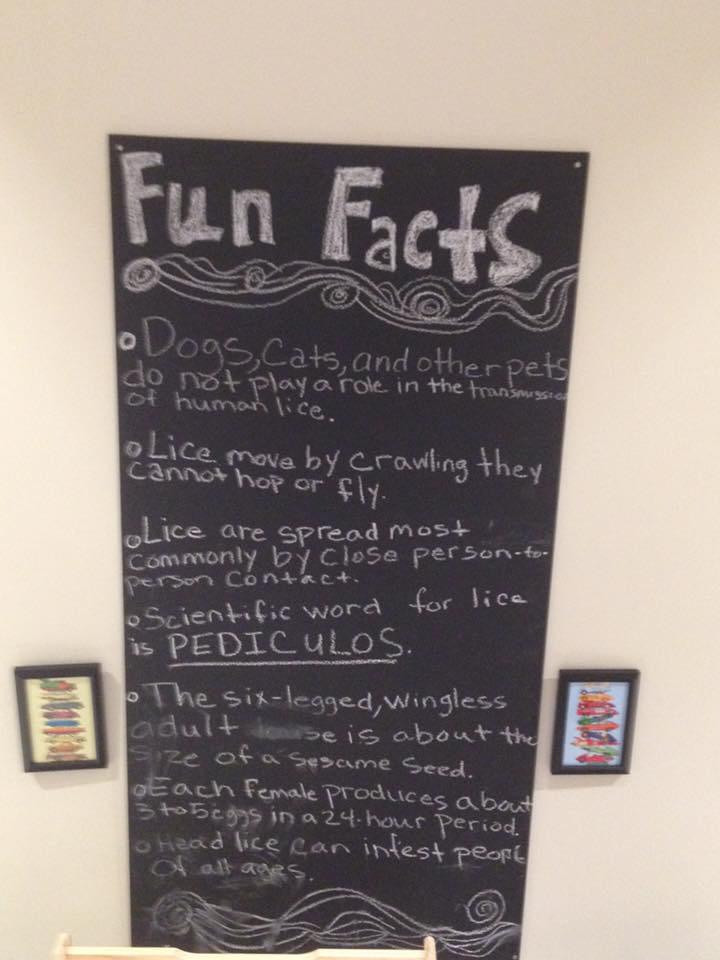 Fun Facts
Dogs, Cats, and other pets
do not play a role in the transmission
of human lice.
Lice move by crawling they
cannot hop or fly.
Lice are spread most
commonly by close person-to-
person contact.
Scientific word for lice
is PEDICULOS.
The six-legged, wingless
adult se is about the
size of a sesame seed.
Each female produces about
3 to 5 eggs in a 24-hour period.
Head lice can infest people
of all ages.